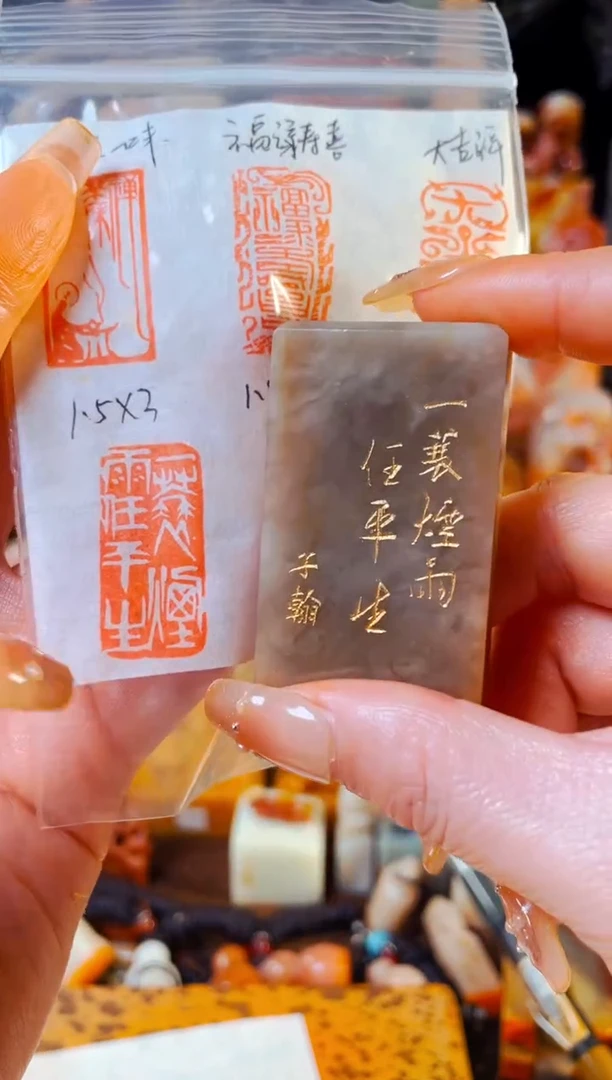 一味
福禄寿喜
大吉祥
1.5X3
一蓑煙
雨任平生
一蓑煙雨
任平生
子翰